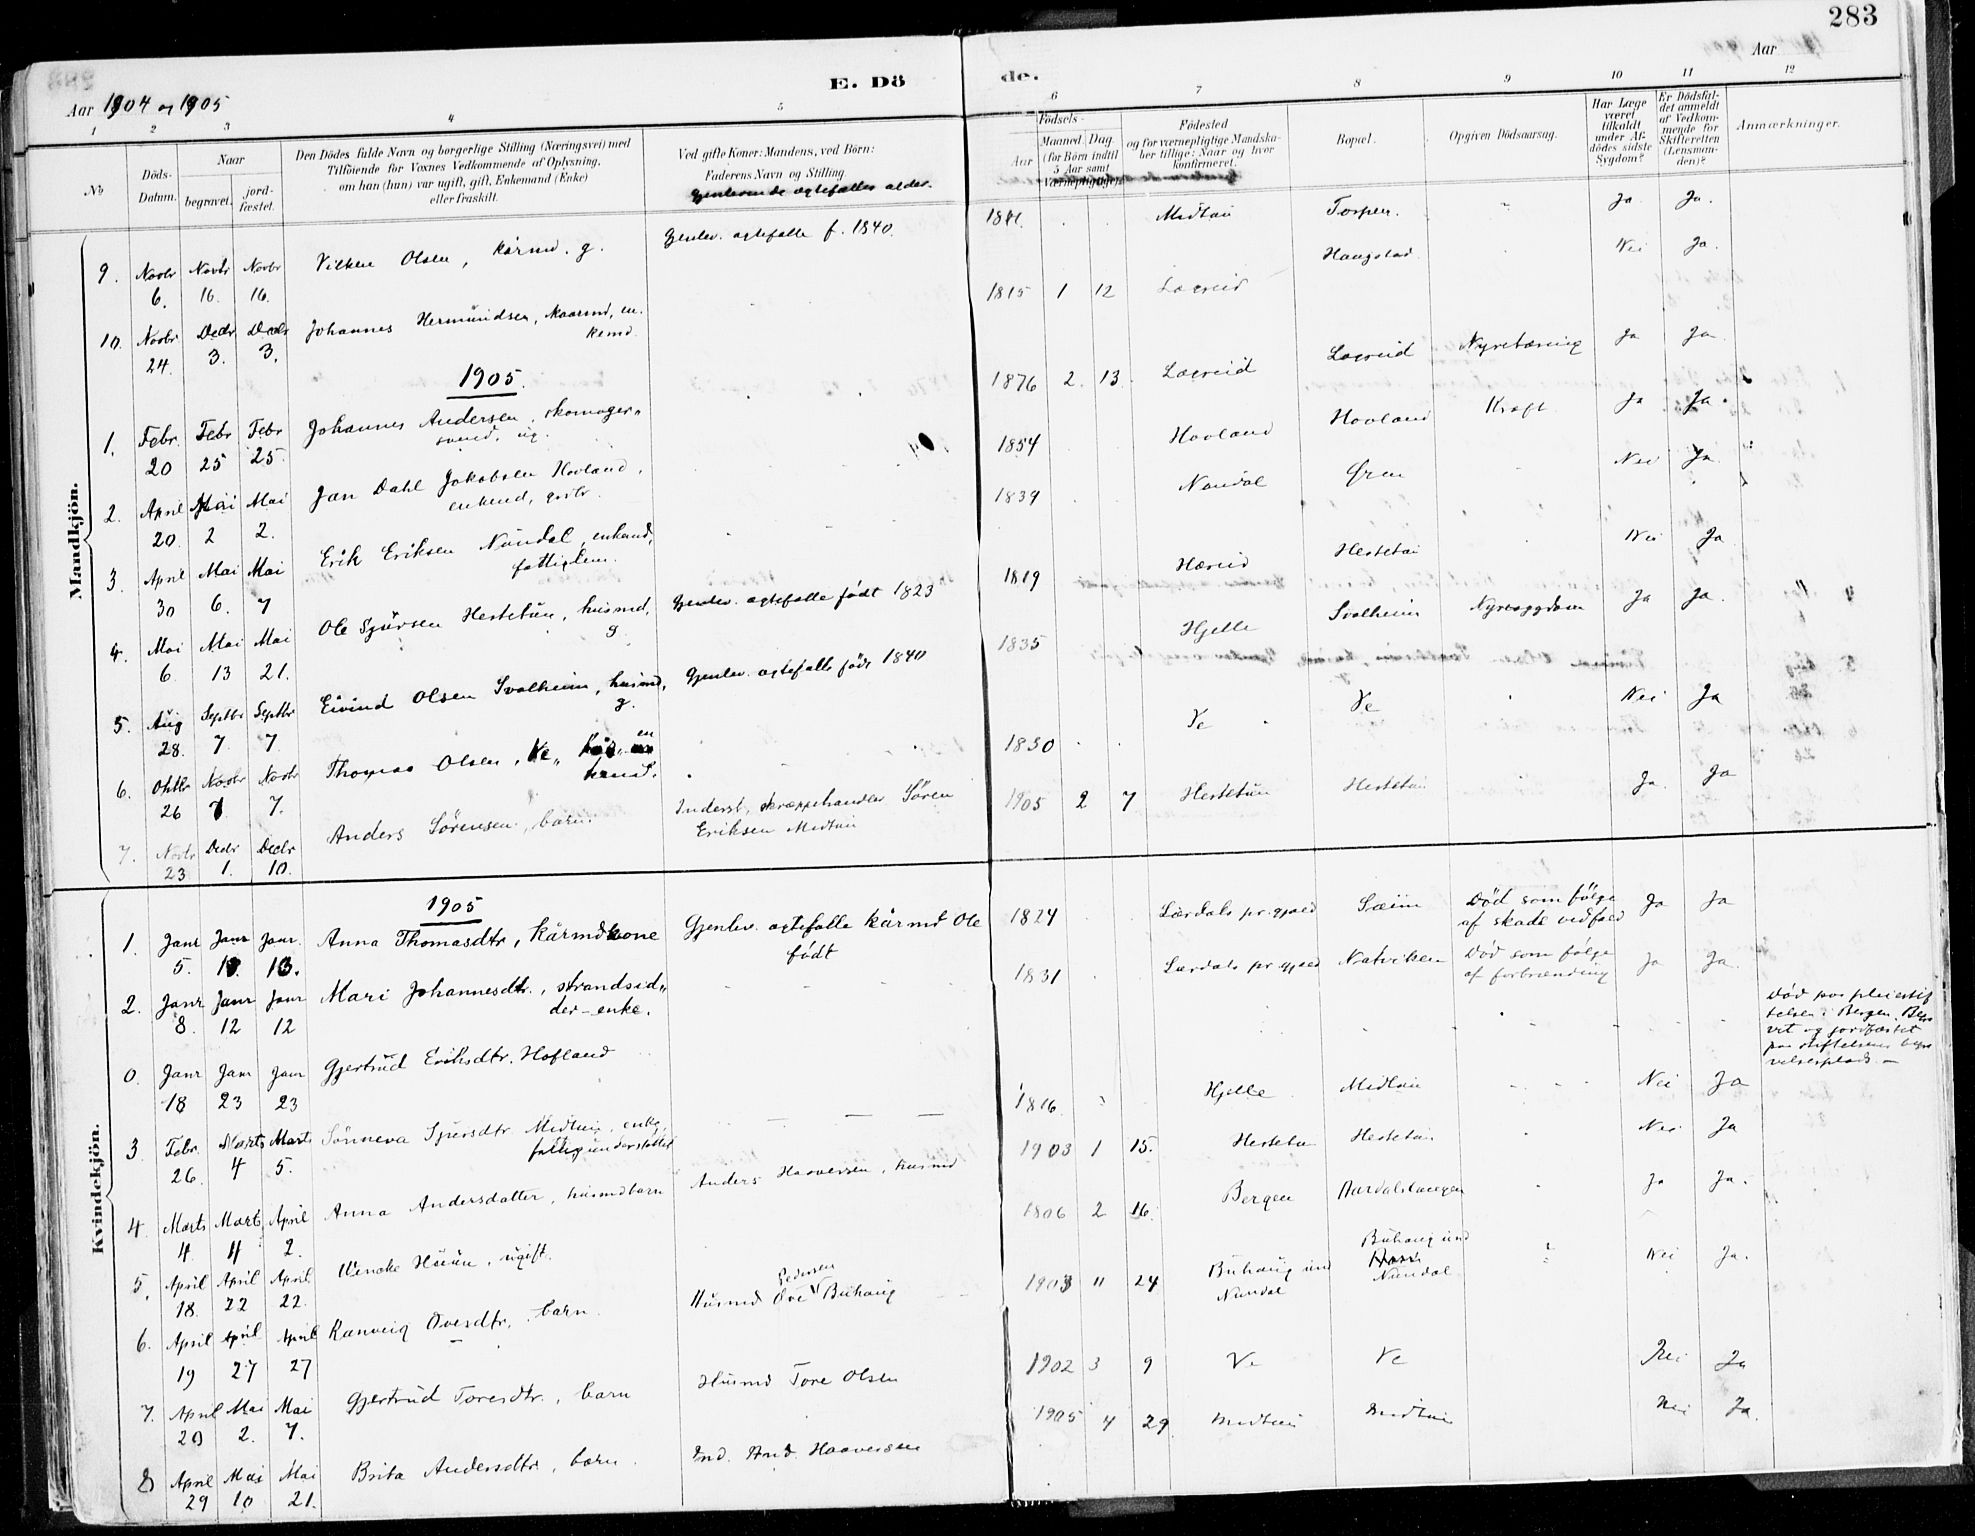 283
Aar 1904 og 1905
E. Dö
de.
Aar
1 2 3 4 5 6 7 8 9 10 11 12
No
Döds-Datum.
Naar
begravet.
jord-fæstet.
Den Dödes fulde Navn og borgerlige Stilling (Næringsvei) med
Tilföiende for Voxnes Vedkommende af Oplysning,
om han (hun) var ugift, gift, Enkemand (Enke)
eller fraskilt.
Ved gifte Koner: Mandens, ved Börn:
Faderens Navn og Stilling
Gjenlevende ægtefælles alder.
Födsels-
Aar
Maaned
Dag.
(for Börn indtil
5 Aar samt
Værnepligtige).
Födested
og for værnepligtige Mandska-
ber tillige: Naar og hvor
konfirmeret.
Bopæl.
Opgiven Dödsaarsag.
Har Læge
været
tilkaldt
under Af-
dödes sidste
Sygdom?
Er Dödsfal-
det anmeldt
af Vedkom-
mende for
Skifteretten
(Lensman-
den)?
Anmærkninger.
Mandkjön.
9. Novbr 6. Novbr 16. Novbr 16. Vilken Olsen, kårmd. g. Gjenlev. ægtefælle f. 1840. Midtun Torpen. Ja. Ja.
10. Novbr 24. Decbr 3. Decbr 3. Johannes Hermundsen, kaarmd, en-
kemd. 1815 1 12 Lægreid Haugstad Nei Ja.
1905.
1. Febr. 20 Febr 25 Febr 25. Johannes Andersen, skomager-
svend, ug. 1876 2. 13. Lægreid Lægreid Nyretæring Ja Ja
2. April 20. Mai 2 Mai 2. Jan Dahl Jakobsen Hovland,
enkemd, gbr. 1854 Hovland Hovland Kræft Ja Ja.
3. April 30 Mai 6. Mai 7 Erik Eriksen Nundal, enkemd,
fattiglem. 1839 Nundal Øren Nei Ja
4. Mai 6. Mai 13 Mai 21. Ole Sjursen Hestetun, husmd,
g. Gjenlev. ægtefælle født 1823 1819 Hæreid Hestetun Nei Ja
5. Aug 28. Septbr 7. Septbr 7 Eivind Olsen Svalheim, husmd,
g. Gjenlev. ægtefælle født 1840 1835 Hjelle Svalheim Nyresygdom Ja Ja.
6. Oktbr 26 Novbr 7 Novbr 7. Thomas Olsen, Ve, en
kemd. 1830 Ve Ve Nei Ja
7. Novbr 23 Decbr 1. Decbr 10. Anders Sørensen, barn. Inderst, skræppehandler Søren
Eriksen Midtun 1905 2 7 Hestetun Hestetun Ja. Ja
Kvindekjön.
1905
1. Janr 5. Janr Janr. 13. Anna Thomasdtr, kårmdkone Gjenlev. ægtefælle kårmd Ole
født 1824 Lærdals pr.gjæld Sæim Død som følge
af skade vedføed Ja Ja
2. Janr 8. Janr 12 Janr 12 Mari Johannesdtr., strandsid-
der-enke. 1831 Lærdals pr.gjæld Natviken Død som følge
af forbrænding Ja Ja.
0. Janr 18 Janr 23 Janr 23 Gjertrud Eriksdtr. Hofland Død paa pleiestif
telsen i Bergen. Begra
vet og jordfæstet
paa stiftelsens begra
velsesplads.
3. Febr. 26. Marts 4 Marts 5. Sønneva Sjursdtr Midtun, enke,
fattigunderstøttet 1816 Hjelle Midtun Nei Ja
4. Marts 4. Marts 11 April 2. Anna Andersdatter, husmdbarn Anders Haaversen, husmd 1903 1 15. Hestetun Hestetun Nei Ja
5. April 18. April 22 April 22. Wencke Huun, ugift. 1806 2 16. Bergen Aardalstangen Ja Ja.
6. April 19 April 27 April 27 Ranveig Ovesdtr., barn. Husmd Ove Pedersen Buhaug 1903 11 24 Buhaug und
Nundal Buhaug und
Nundal Nei Ja.
7. April 20 Mai 2. Mai 7. Gjertrud Toresdtr., barn Husmd Tore Olsen 1902 3 9 Ve Ve Nei Ja
8 April 29 Mai 10 Mai 21. Brita Andersdtr, barn. Ind. And. Haaversen 1905 4 29 Midtun Midtun Nei Ja.